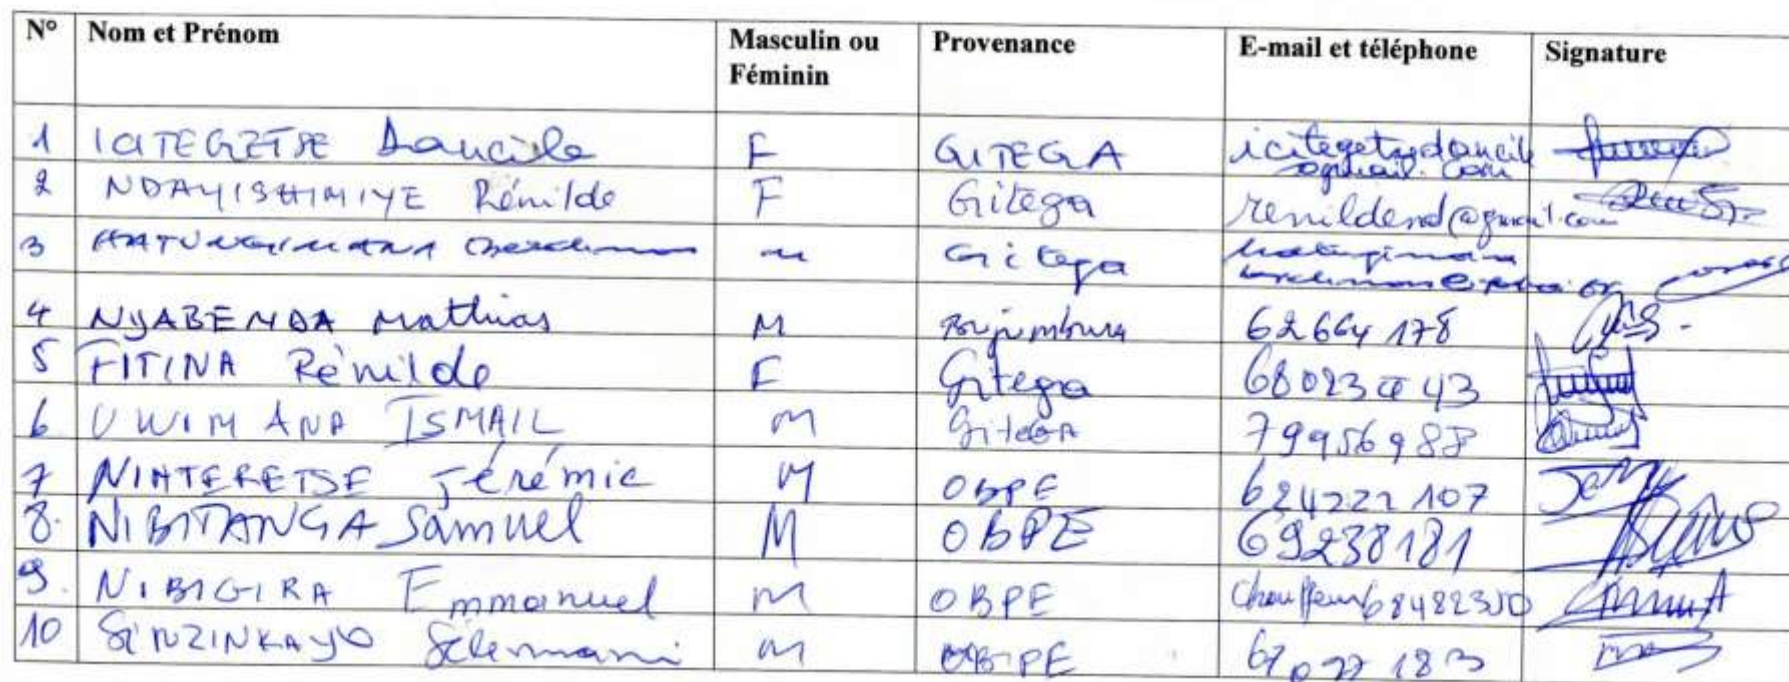 N° Nom et Prénom Masculin ou Féminin Provenance E-mail et téléphone Signature
1 ICITEGETSE Dancile F GITEGA icitegetsedancile@gmail.com
2 NDAYISHIMIYE Rénilde F Gitega renildend@gmail.com
3 HATUNGIMANA M Gitega
4 NYABENDA Mathias M Bujumbura 62664178
5 FITINA Rénilde F Gitega 68023 43
6 UWIMANA ISMAIL M Gitega 79956988
7 NIHTERETSE Jérémie M OBPE 624222107
8. NIBITANGA Samuel M OBPE 69238181
9. NIBIGIRA Emmanuel M OBPE Chauffeur 68482300
10 SINZINKAYO Selemani M OBPE 183